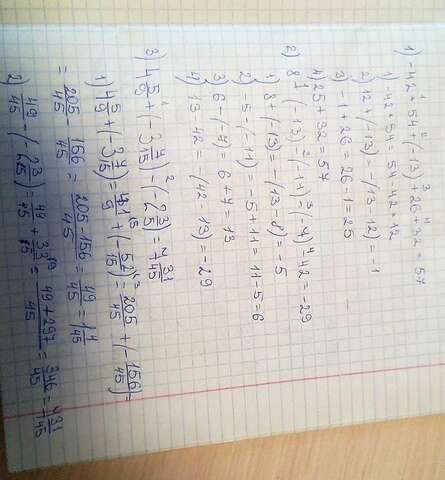 1) -42+54+(-13)+26+32=57
1) -42+54=54-42=12
2) 12+(-13)=-(13-12)=-1
3) -1+26=26-1=25
4) 25+32=57
2) 8+(-13)-(-11)-(-7)-42=-29
1) 8+(-13)=-(13-8)=-5
2) -5-(-11)=-5+11=11-5=6
3) 6-(-7)=6+7=13
4) 13-42=-(42-13)=-29
3) 4 5/9+(-3 7/15)-(-6 3/5)=7 31/45
1) 4 5/9+(-3 7/15)=41/9+(-52/15)=205/45+(-156/45)=
=205/45-156/45=205-156/45=49/45=1 4/45
2) 49/45-(-6 3/5)=49/45+33/5=49+297/45=346/45=7 31/45